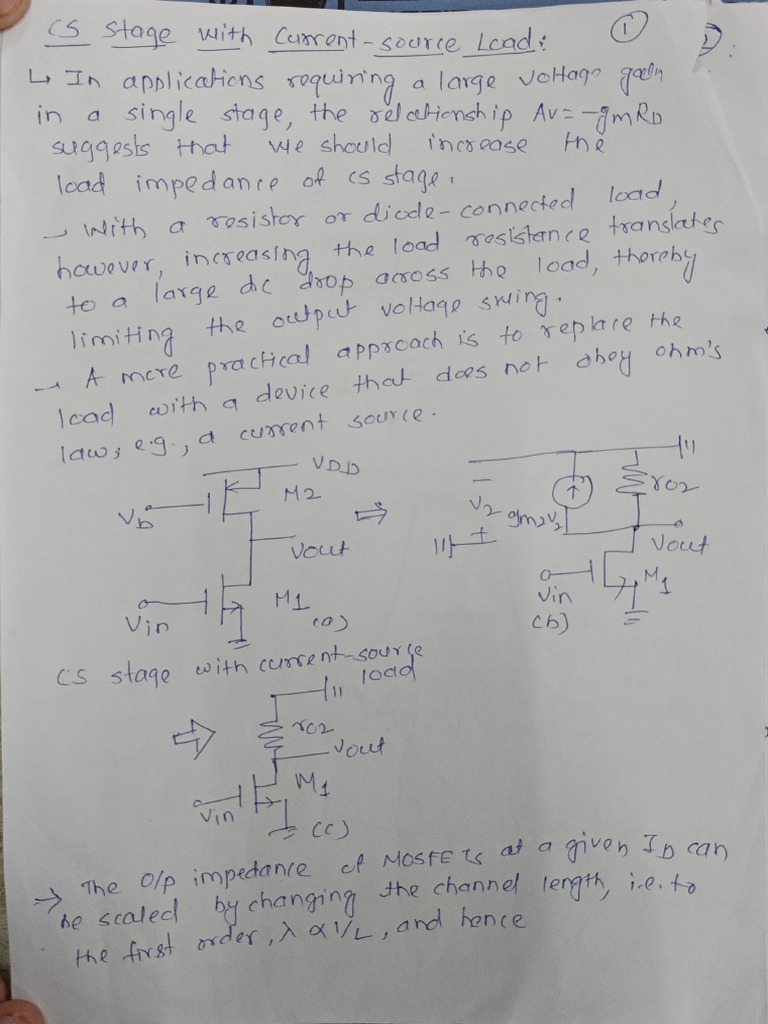 CS Stage with Current-source Load: ①
↳ In applications requiring a large voltage gain
in a single stage, the relationship Av = -gmRD
suggests that we should increase the
load impedance of CS stage.
→ With a resistor or diode-connected load,
however, increasing the load resistance translates
to a large dc drop across the load, thereby
limiting the output voltage swing.
→ A more practical approach is to replace the
load with a device that does not obey ohm's
law, e.g., a current source.
VDD
Vb M2
Vout
Vin M1
(a)
⇒
- V2 +
gm2V2 ro2
Vout
Vin M1
(b)
CS stage with current-source
load
⇒ ro2
Vout
Vin M1
(c)
→ The O/p impedance of MOSFETs at a given ID can
be scaled by changing the channel length, i.e. to
the first order, λ ∝ 1/L, and hence